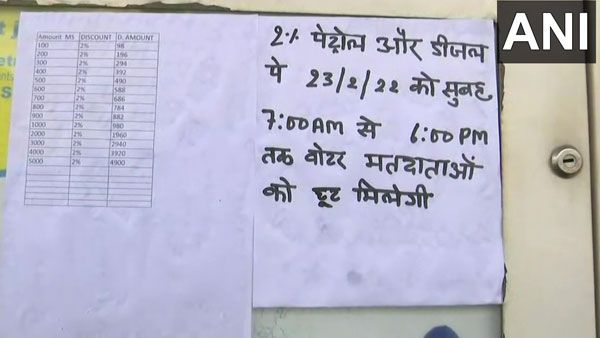 ANI
Amount MS DISCOUNT D. AMOUNT
100 2% 98
200 2% 196
300 2% 294
400 2% 392
500 2% 490
600 2% 588
700 2% 686
800 2% 784
900 2% 882
1000 2% 980
2000 2% 1960
3000 2% 2940
4000 2% 3920
5000 2% 4900
2% पेट्रोल और डीजल
पे 23/2/22 को सुबह
7:00AM से 6:00PM
तक वोटर मतदाताओं
को छूट मिलेगी